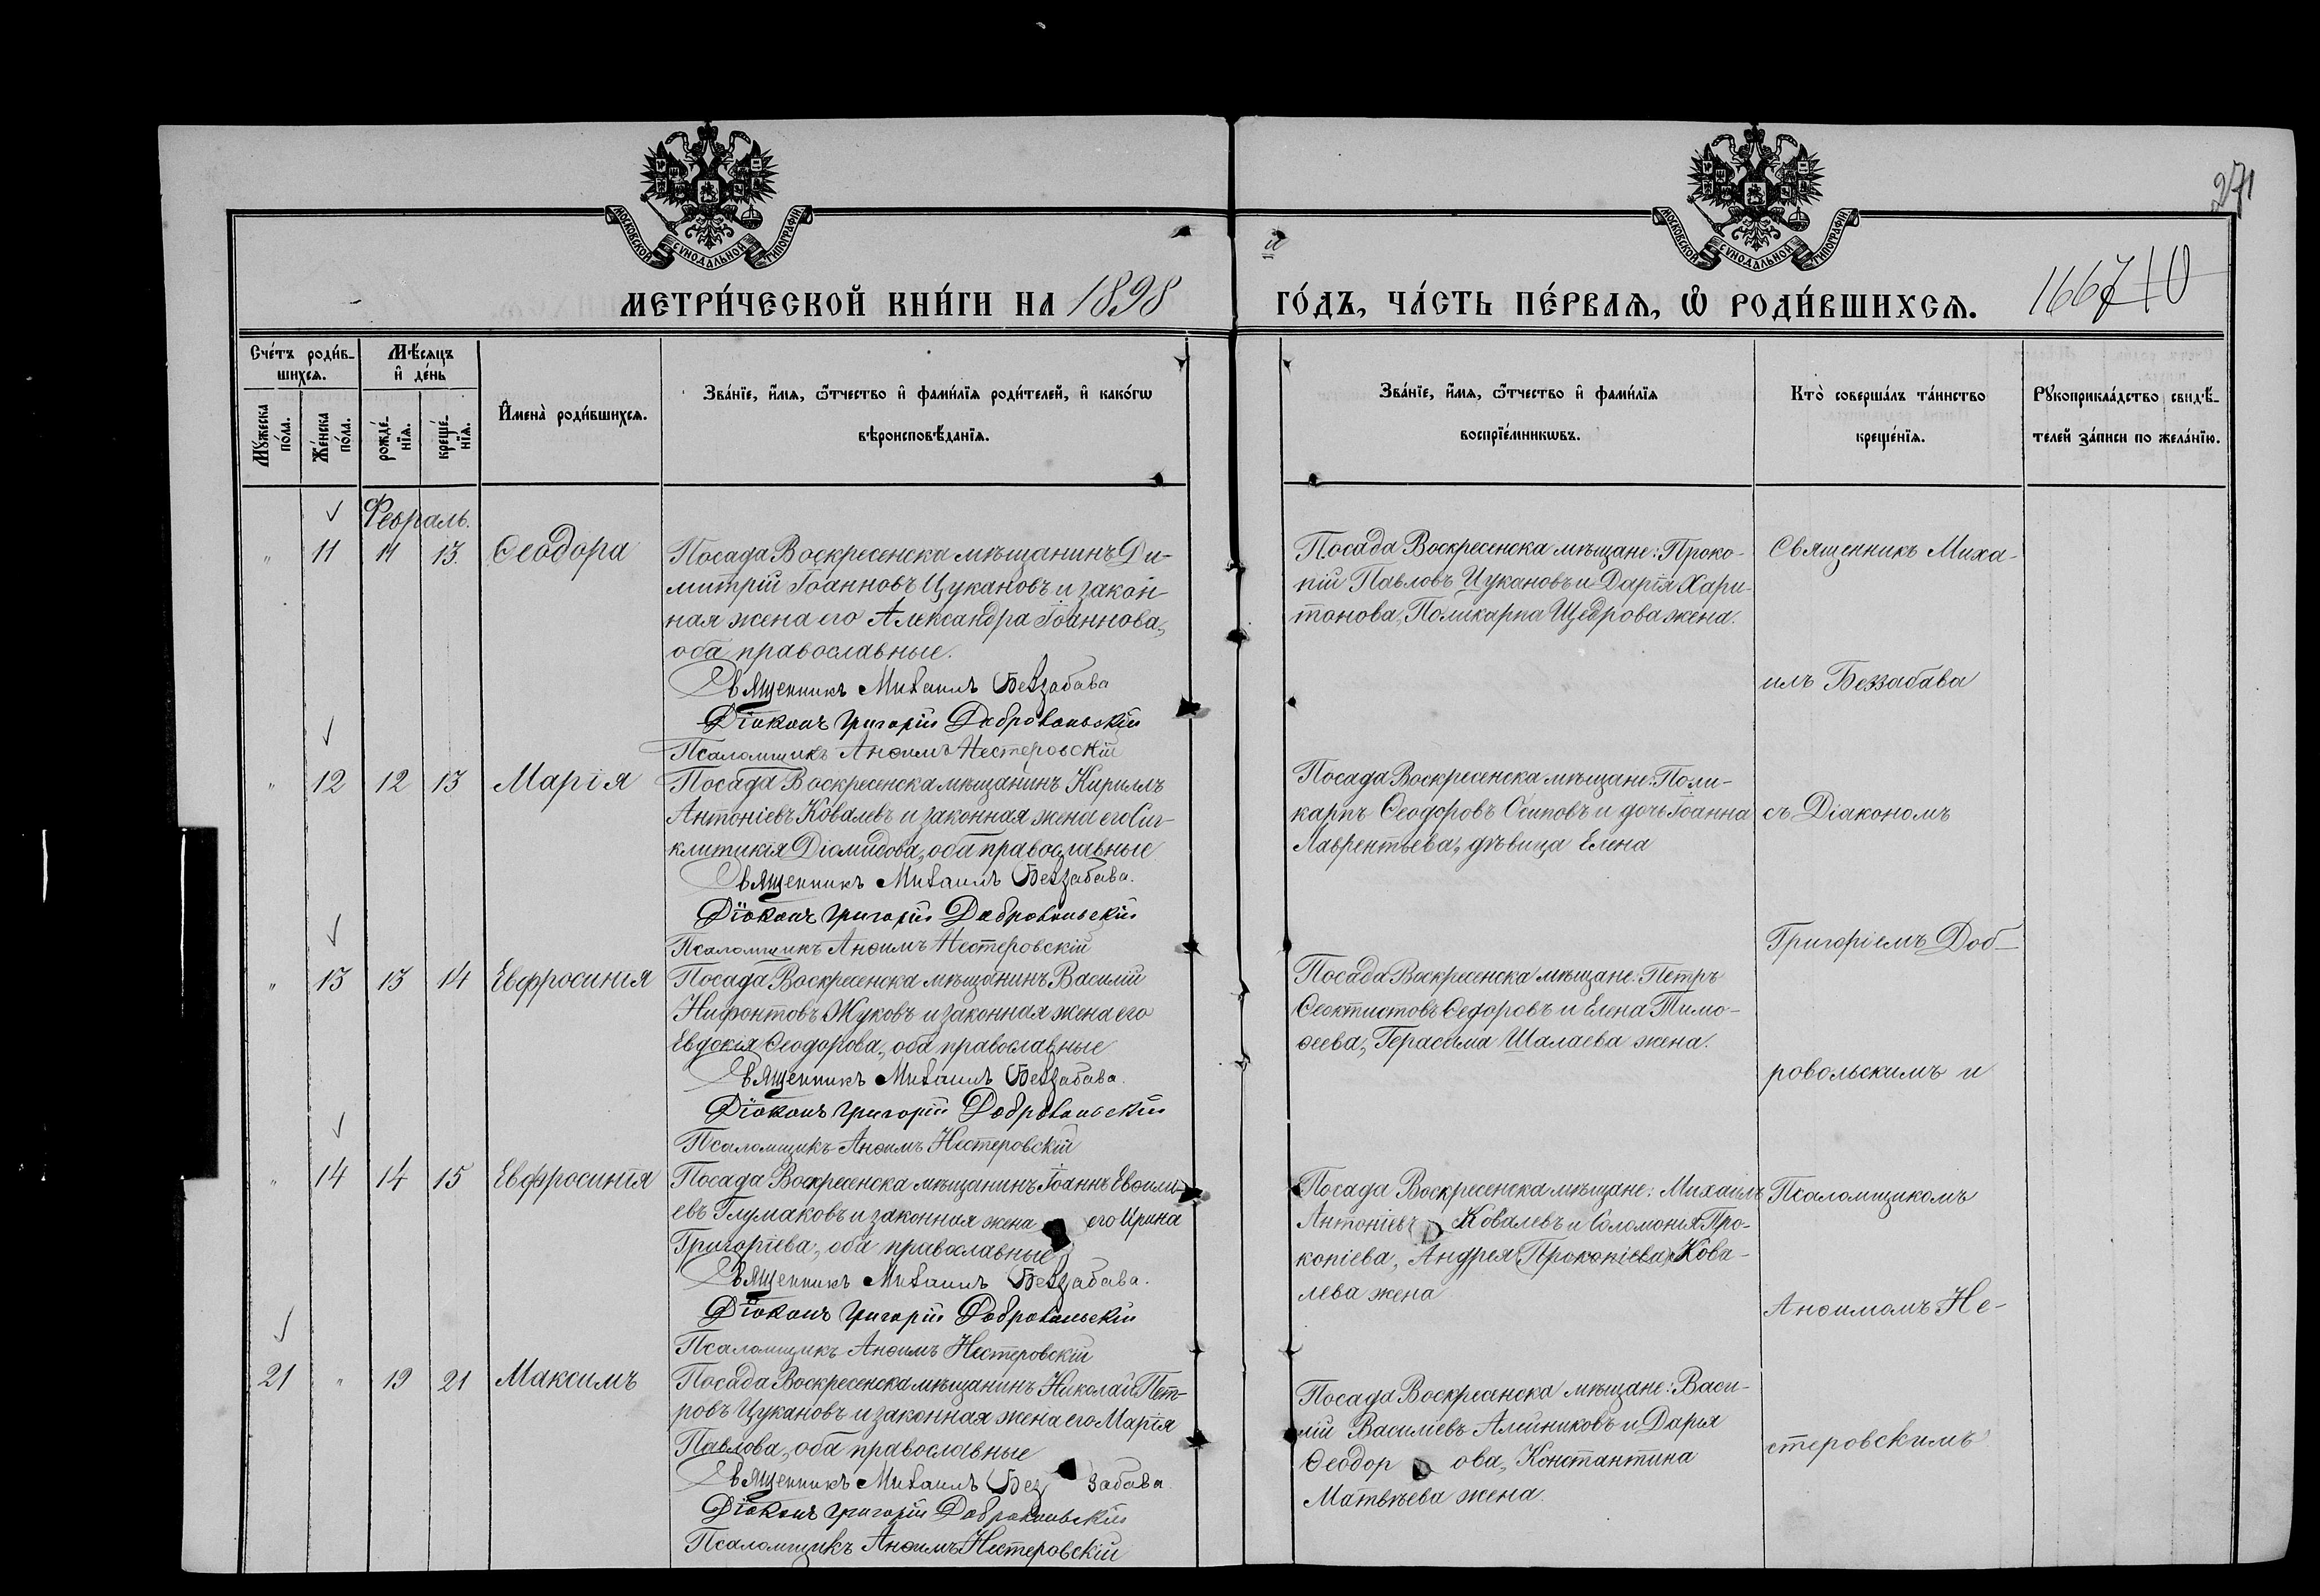 271
МОСКОВСКОЙ СѴНОДАЛЬНОЙ ТИПОГРАФІИ
МОСКОВСКОЙ СѴНОДАЛЬНОЙ ТИПОГРАФІИ
МЕТРИ́ЧЕСКОЙ КНИ́ГИ НА 1898
ГО́ДЪ, ЧА́СТЬ ПЕ́РВАѦ, Ѽ РОДИ́ВШИХСѦ.
Сче́тъ роди́в-
шихсѧ.
Мѣ́сѧцъ
и҆ де́нь
Мꙋ́жеска
по́ла.
Же́нска
по́ла.
рожде́-
нїѧ.
креще́-
нїѧ.
И҆мена̀ роди́вшихсѧ.
Зва́нїе, и҆́мѧ, ѻ҆́тчество и҆ фами́лїѧ роди́телей, и҆ како́гѡ
вѣроисповѣ́данїѧ.
Зва́нїе, и҆́мѧ, ѻ҆́тчество и҆ фами́лїѧ
воспрїе́мникѡвъ.
Кто̀ соверша́лъ та́инство
креще́нїѧ.
Рꙋкоприкла́дство свидѣ́-
телей за́писи по жела́нїю.
Февраль.
" 11 11 13. Ѳеодора
Посада Воскресенска мѣщанинъ Ди-
митрій Іоанновъ Цукановъ и закон-
ная жена его Александра Іоаннова,
оба православные.
Священникъ Михаилъ Беззабава
Діаконъ Григорій Добровольскій
Псаломщикъ Анѳимъ Нестеровскій
Посада Воскресенска мѣщане: Проко-
пій Павловъ Цукановъ и Дарія Хари-
тонова, Поликарпа Щедрова жена.
Священникъ Миха-
илъ Беззабава
" 12 12 13 Марія
Посада Воскресенска мѣщанинъ Кириллъ
Антоніевъ Ковалевъ и законная жена его Син-
клитикія Діомидова, оба православные
Священникъ Михаилъ Беззабава.
Діаконъ Григорій Добровольскій
Псаломщикъ Анѳимъ Нестеровскій
Посада Воскресенска мѣщане: Поли-
карпъ Ѳеодоровъ Осиповъ и дочь Іоанна
Лаврентьева, дѣвица Елена
съ Діакономъ
Григоріемъ Доб-
" 13 13 14 Евфросинія
Посада Воскресенска мѣщанинъ Василій
Нифонтовъ Жуковъ и законная жена его
Евдокія Ѳеодорова, оба православные
Священникъ Михаилъ Беззабава.
Діаконъ Григорій Добровольскій
Псаломщикъ Анѳимъ Нестеровскій
Посада Воскресенска мѣщане: Петръ
Ѳеоктистовъ Ѳедоровъ и Елена Тимо-
ѳеева, Герасима Шалаева жена.
ровольскимъ и
" 14 14 15 Евфросинія
Посада Воскресенска мѣщанинъ Іоаннъ Евѳимі-
евъ Глумаковъ и законная жена его Ирина
Григоріева, оба православные
Священникъ Михаилъ Беззабава.
Діаконъ Григорій Добровольскій
Псаломщикъ Анѳимъ Нестеровскій
Посада Воскресенска мѣщане: Михаилъ
Антоніевъ Ковалевъ и Соломонія Про-
копіева, Андрея Прокопіева Кова-
лева жена
Псаломщикомъ
Анѳимомъ Не-
21 " 19 21 Максимъ
Посада Воскресенска мѣщанинъ Николай Пет-
ровъ Цукановъ и законная жена его Марія
Павлова, оба православные
Священникъ Михаилъ Без забава.
Діаконъ Григорій Добровольскій
Псаломщикъ Анѳимъ Нестеровскій
Посада Воскресенска мѣщане: Васи-
лій Василіевъ Алейниковъ и Дарья
Ѳеодор ова, Константина
Матвѣева жена.
стеровскимъ